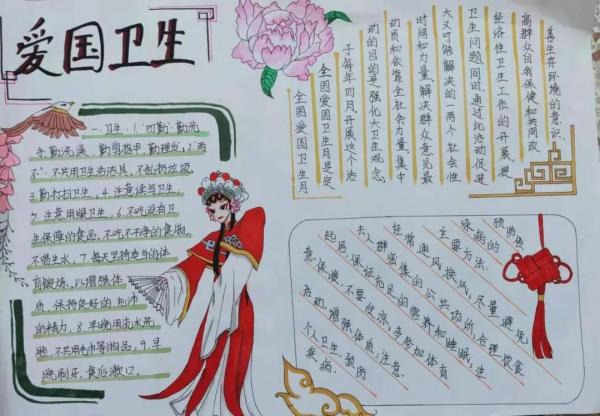 爱国卫生
一、卫生,1."四勤"勤洗
手,勤洗澡,勤剪指甲,勤理发;2."两
不",不共用卫生洁具,不乱扔垃圾。
3.勤打扫卫生。4.注意读写卫生。
5.注意用眼卫生。6.不吃没有卫
生保障的食品,不吃不干净的食物,
不喝生水。7.每天坚持适当的体
育锻炼,以增强体
质,保持良好的、充沛
的精力。8.早晚用流水洗
脸,不共用毛巾等物品。9.早
晚刷牙,食后漱口。
全国爱国卫生月
全国爱国卫生月是定
于每年四月,开展这个活
动的目的是强化大卫生观念,
动员和依靠全社会力量,集中
时间和力量,解决群众意见最
大又可能解决的一两个社会性
卫生问题,同时,通过此活动促进
经常性卫生工作的开展,提
高群众自我保健和共同改
善生存环境的意识
预防传
染病的
主要方法:
经常通风换气,尽量避免
去人群密集的公共场所,合理饮食
起居,保证充足的营养和睡眠;注
意保暖,不要受凉;多参加体育
活动,增强体质;注意
个人卫生,预防
疾病。